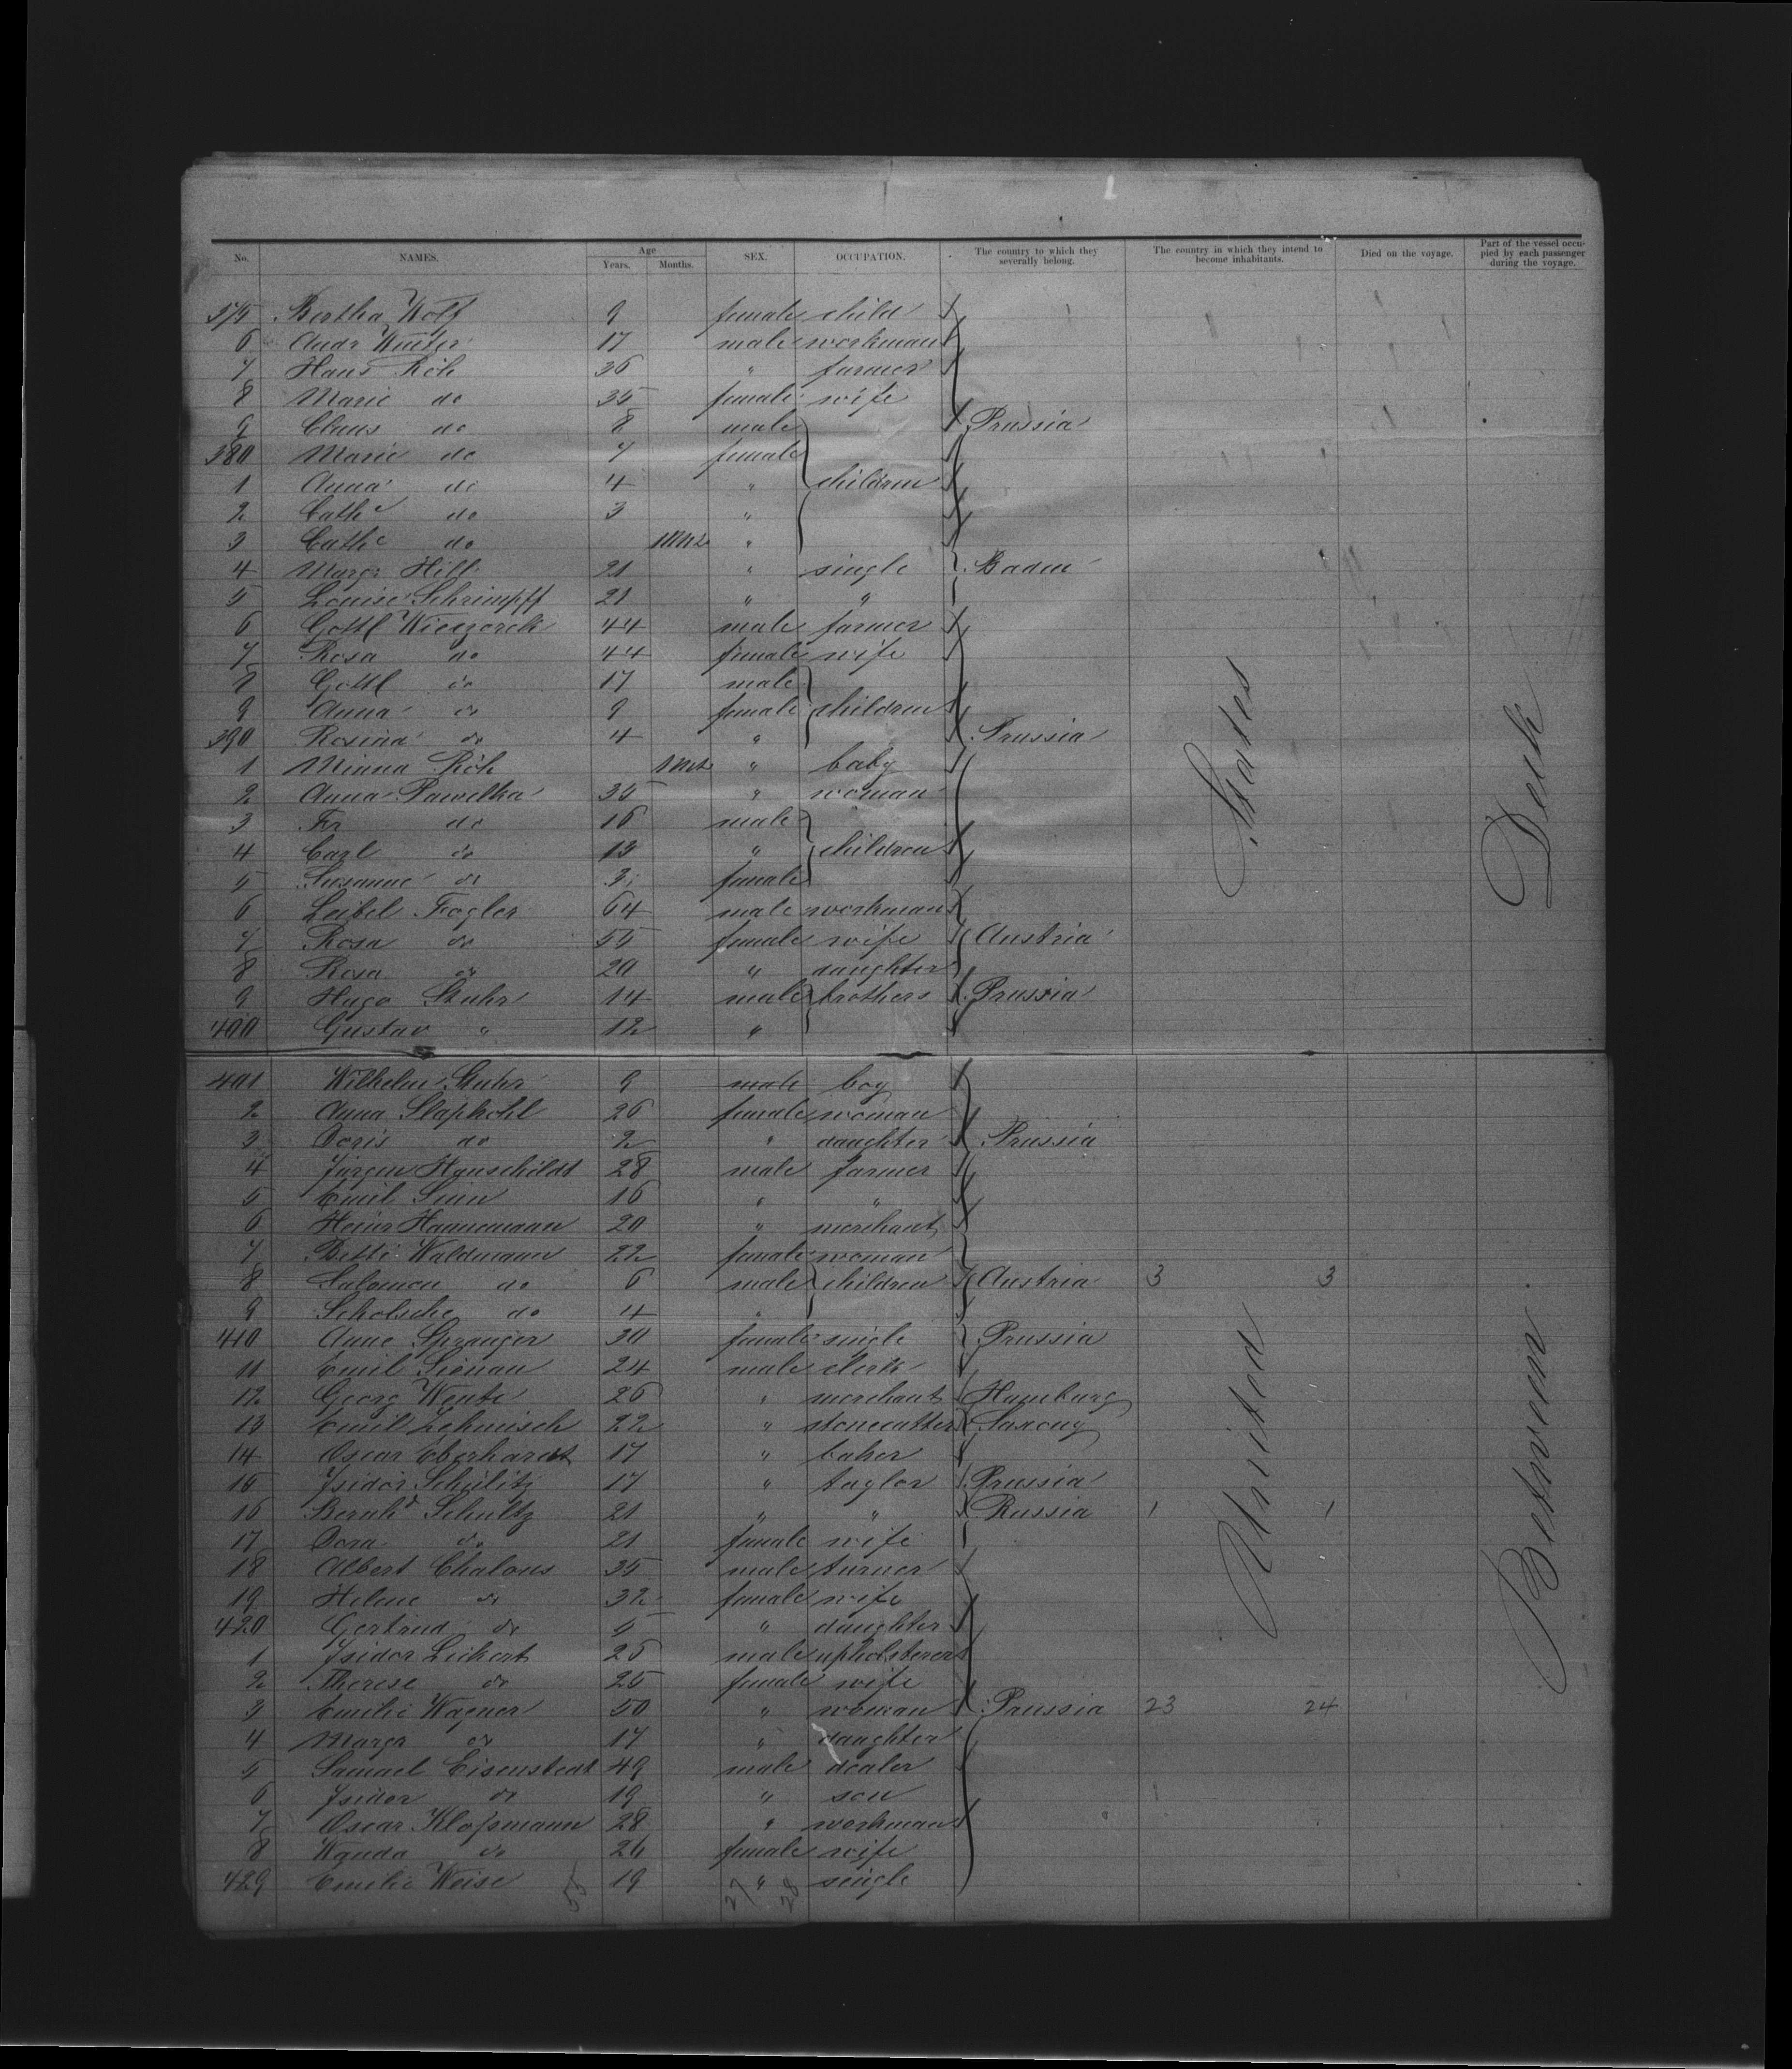 No. NAMES. Age Years. Months. SEX. OCCUPATION. The country to which they severally belong. The country in which they intend to become inhabitants. Died on the voyage. Part of the vessel occupied by each passenger during the voyage.
375 Bertha Wolf 9 female child
6 Andr Winter 17 male workman
7 Hans Röh 36 " farmer
8 Marie do 35 female wife
9 Claus do 8 male Prussia
380 Marie do 7 female
1 Anna do 4 " children
2 Cathe do 3 "
3 Cathe do "
4 Margr Hill 21 " single Baden
5 Louise Schrimpff 21 " "
6 Gottl Wieczorek 44 male farmer
7 Rosa do 44 female wife
8 Gottl do 17 male
9 Anna do 9 female children
390 Rosina do 4 " Prussia
1 Minna Röh " baby
2 Anna Pawelka 35 " woman
3 Fr do 16 male
4 Carl do 13 " children
5 Susanne do 3 female
6 Leibel Fogler 64 male workman
7 Rosa do 55 female wife Austria
8 Rosa do 20 " daughter
9 Hugo Stuhr 14 male brothers Prussia
400 Gustav " 12 "
401 Wilhelm Stuhr 9 male boy
2 Anna Slaphohl 26 female woman
3 Doris do 2 " daughter Prussia
4 Jürgen Hanschildt 28 male farmer
5 Emil Sinn 16 " "
6 Heinr Hannemann 20 " merchant
7 Betti Waldmann 22 female woman
8 Salomon do 6 male children Austria 3 3
9 Scholsche do 4 "
410 Anne Spranger 30 female single Prussia
11 Emil Sienau 24 male clerk
12 Georg Wente 26 " merchant Hamburg
13 Emil Zehmisch 22 " stonecutter Saxony
14 Oscar Eberhardt 17 " baker
15 Isidor Schülitz 17 " taylor Prussia
16 Bernhd Schultz 21 " " Russia 1 1
17 Dora do 21 female wife
18 Albert Chalons 35 male turner
19 Helene do 32 female wife
420 Gertrud do 5 " daughter
1 Isidor Lickert 25 male upholsterer
2 Therese do 25 female wife
3 Emilie Wagner 50 " woman Prussia 23 24
4 Margr do 17 " daughter
5 Samuel Eisenstedt 49 male dealer
6 Isidor do 19 " son
7 Oscar Kloßmann 28 " workman
8 Wanda do 26 female wife
429 Emilie Weise 19 " single
55 27 28
United States
Between Deck